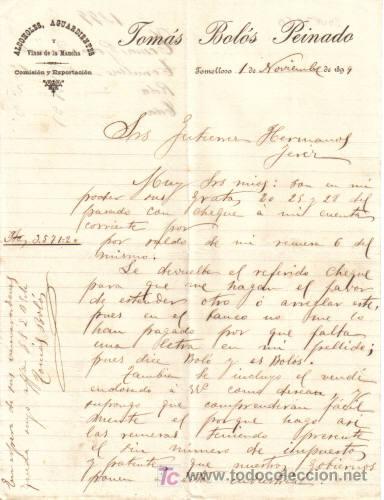 ALCOHOLES, AGUARDIENTES
Y
Vinos de la Mancha
Comisión y Exportación
Tomás Bolós Peinado
Tomelloso 1 de Noviembre de 1899
Srs Gutierrez Hermanos
Jerez
Muy Srs mios: son en mi
poder sus gratas 20 25 y 28 del
pasado con cheque a mi cuenta
corriente por
Ptas 3.571.20
por saldo de mi remesa 6 del
mismo.
Le devuelbo el referido cheque
para que me hagan el favor
de estender otro ó arreglar este,
pues en el Banco no me lo
han pagado por que falta
una letra en mi apellido;
pues dice Boló y es Bolós.
Tambien le incluyo el vendi
endosado á VV como desean, y
supongo que comprenderan fácil
mente el porque hago asi
las remesas teniendo presente
el sin numero de impuestos
y patente que nuestros Gobiernos
ponen
En espera de sus
q. b. s. m.
Tomás Bolós
todocoleccion